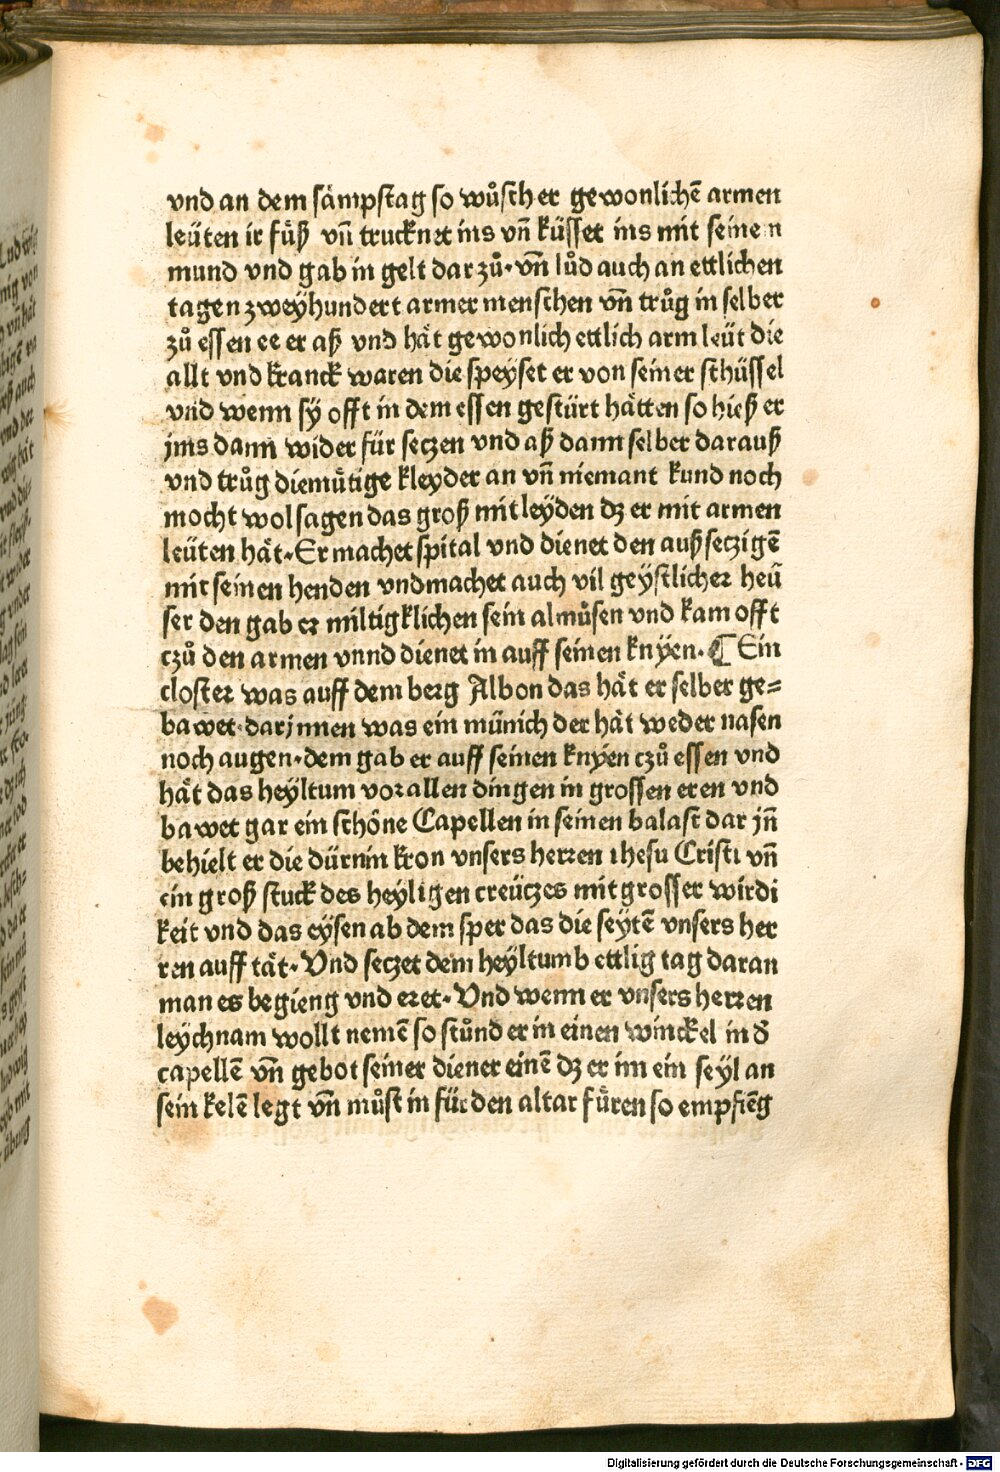 vnd an dem sämpstag so wůsch er gewonlichē armen
leüten ir fůß vn̄ trucknet ins vn̄ küsset ins mit seinen
mund vnd gab in gelt dar zů·vn̄ lůd auch an ettlichen
tagen zweÿhundert armer menschen vn̄ trůg in selber
zů essen ee er aß vnd hät gewonlich ettlich arm leüt die
allt vnd kranck waren die speÿset er von seiner schüssel
vnd wenn sÿ offt in dem essen gestürt hätten so hieß er
jms dann wider für seczen vnd aß dann selber darauß
vnd trůg diemůtige kleyder an vn̄ niemant kund noch
mocht wol sagen das groß mitleÿden dz er mit armen
leüten hät·Er machet spital vnd dienet den außseczigē
mit seinen henden vndmachet auch vil geÿstlicher heü
ser den gab er miltigklichen sein almůsen vnd kam offt
czů den armen vnnd dienet in auff seinen knÿen· ¶ Ein
closter was auff dem berg Albon das hät er selber ge=
bawet·darjnnen was ein münich der hät weder nasen
noch augen·dem gab er auff seinen knÿen czů essen vnd
hät das heÿltum vor allen dingen in grossen eren vnd
bawet gar ein schöne Capellen in seinen balast dar jn̄
behielt er die dürnin kron vnsers herren ihesu Cristi vn̄
ein groß stuck des heÿligen creüczes mit grosser wirdi
keit vnd das eÿsen ab dem sper das die seÿtē vnsers her
ren auff tät·Vnd seczet dem heÿltumb ettlig tag daran
man es begieng vnd eret·Vnd wenn er vnsers herren
leÿchnam wollt nemē so stůnd er in einen winckel in d̄
capellē vn̄ gebot seiner diener einē dz er im ein seÿl an
sein kelē legt vn̄ můst in für den altar fůren so empfiēg
Digitalisierung gefördert durch die Deutsche Forschungsgemeinschaft - DFG